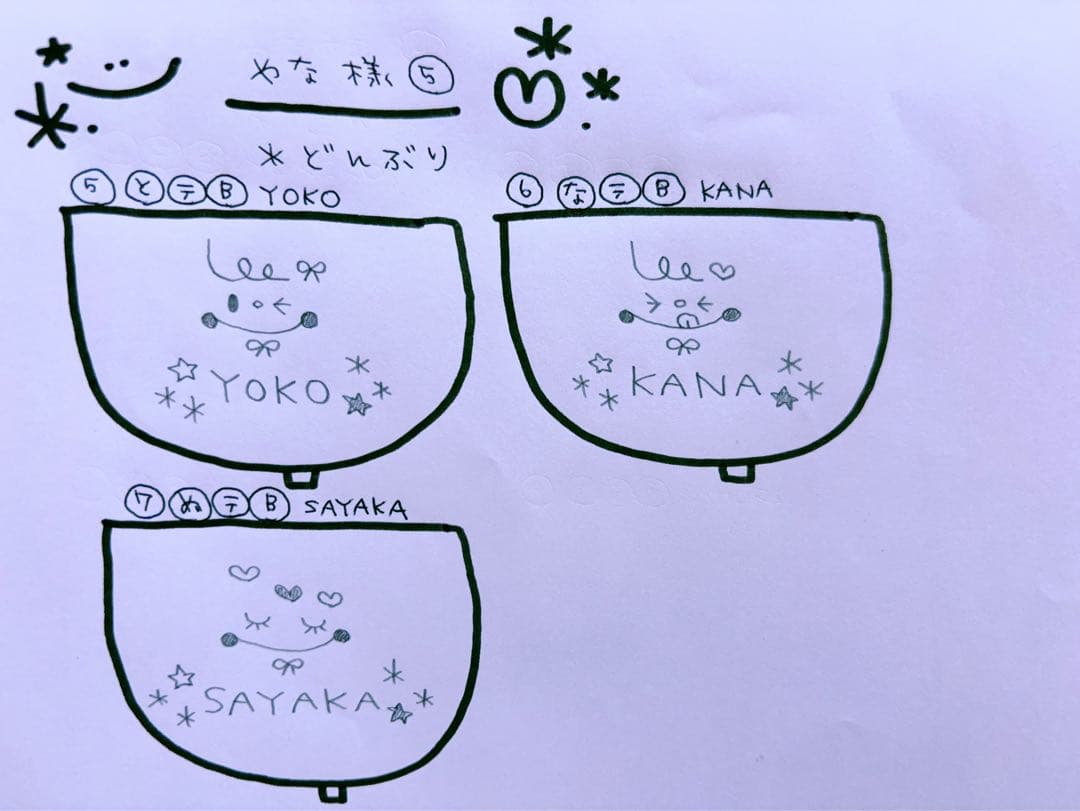 やな様 ⑤
*どんぶり
⑤ とテB YOKO
YOKO
⑥ なテB KANA
KANA
⑦ ぬテB SAYAKA
SAYAKA